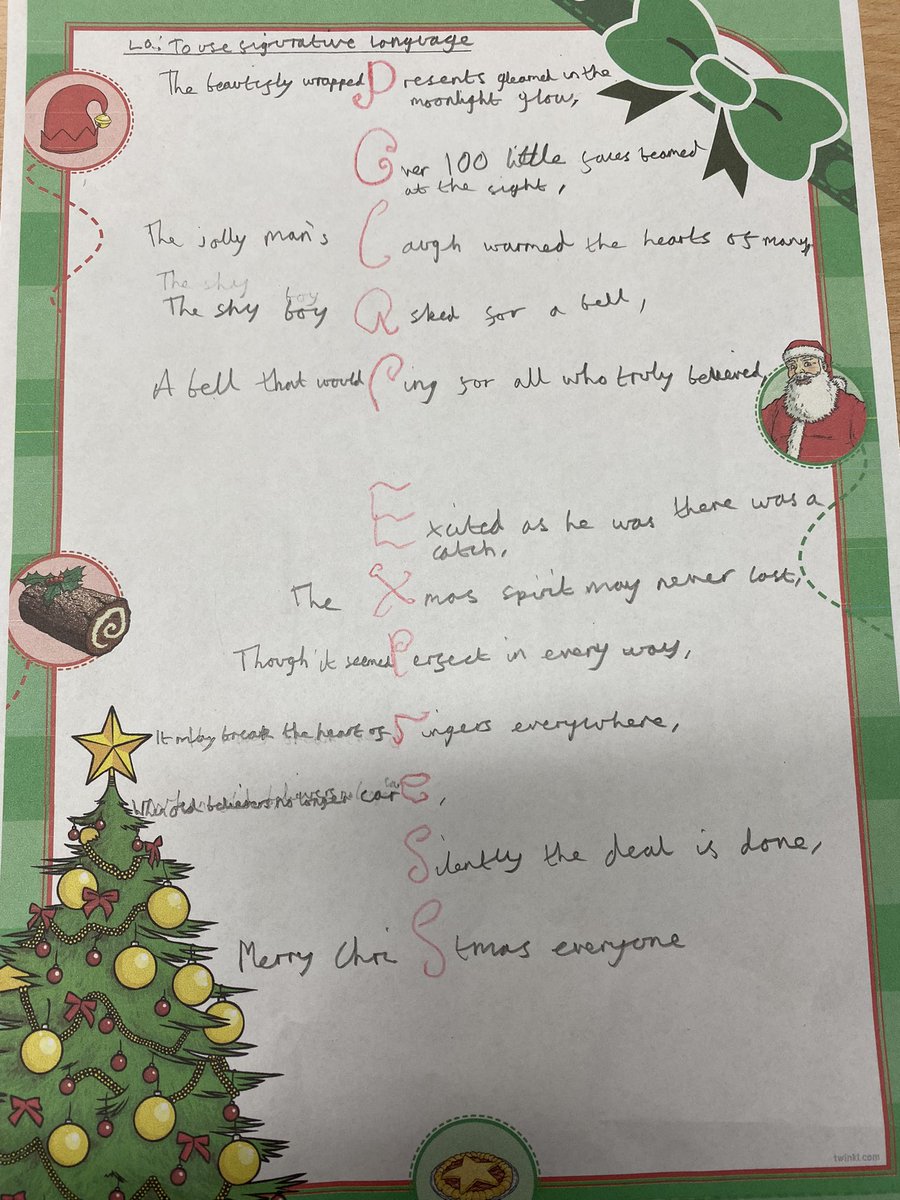 Lo: To use figurative language
The beautifly wrapped Presents gleamed in the
moonlight glow,
Over 100 little faces beamed
at the sight,
The jolly man's Laugh warmed the hearts of many,
The shy boy
The shy boy Asked for a bell,
A bell that would ring for all who truly believed,
Excited as he was there was a
catch,
The Xmas spirit may never last,
Though it seemed Perfect in every way,
It may break the heart of Singers everywhere,
When old believers no longer care,
Silently the deal is done,
Merry ChriStmas everyone
twinkl.com